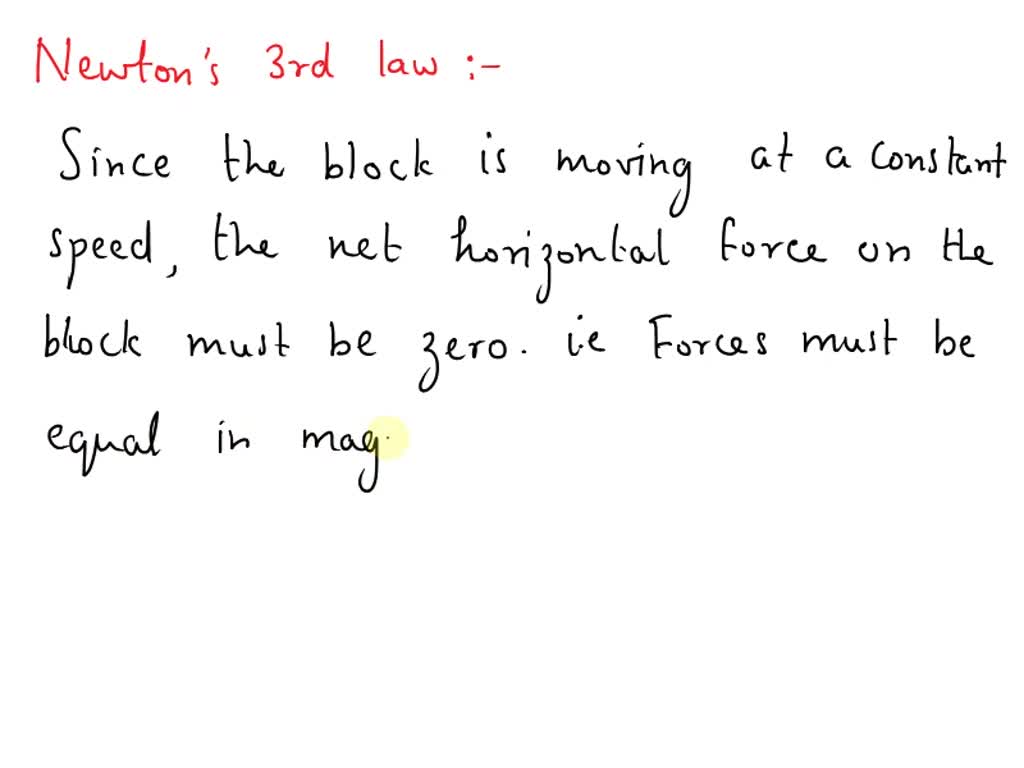 Newton's 3rd law :-
Since the block is moving at a constant
speed, the net horizontal force on the
block must be zero. i.e Forces must be
equal in mag